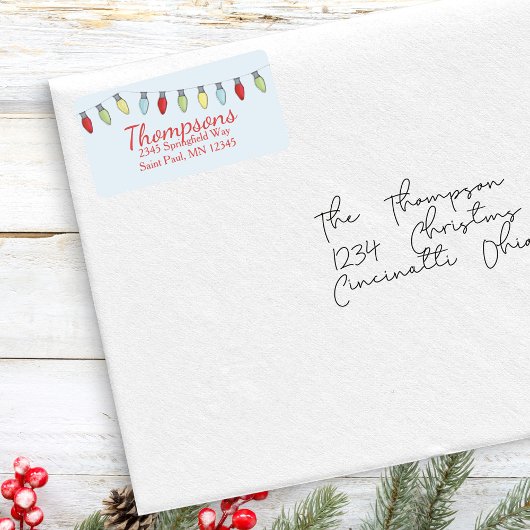 Thompsons
2345 Springfield Way
Saint Paul, MN 12345
The Thompson
1234 Christms
Cincinatti Ohio